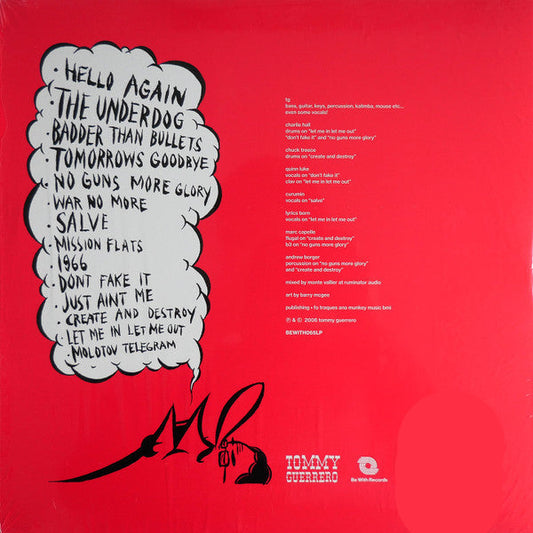 · HELLO AGAIN
· THE UNDERDOG
· BADDER THAN BULLETS
· TOMORROWS GOODBYE
· NO GUNS MORE GLORY
· WAR NO MORE
· SALVE
· MISSION FLATS
· 1966
· DONT FAKE IT
· JUST AINT ME
· CREATE AND DESTROY
· LET ME IN LET ME OUT
· MOLOTOV TELEGRAM
tg
bass, guitar, keys, percussion, kalimba, mouse etc...
even some vocals!
charlie hall
drums on "let me in let me out"
"don't fake it" and "no guns more glory"
chuck treece
drums on "create and destroy"
quinn luke
vocals on "don't fake it"
clav on "let me in let me out"
curumin
vocals on "salve"
lyrics born
vocals on "let me in let me out"
marc capelle
flugal on "create and destroy"
b3 on "no guns more glory"
andrew borger
percussion on "no guns more glory"
and "create and destroy"
mixed by monte vallier at ruminator audio
art by barry mcgee
publishing - fo traques ana munkey music bmi
℗ & © 2006 tommy guerrero
BEWITH055LP
TOMMY
GUERRERO
Be With Records